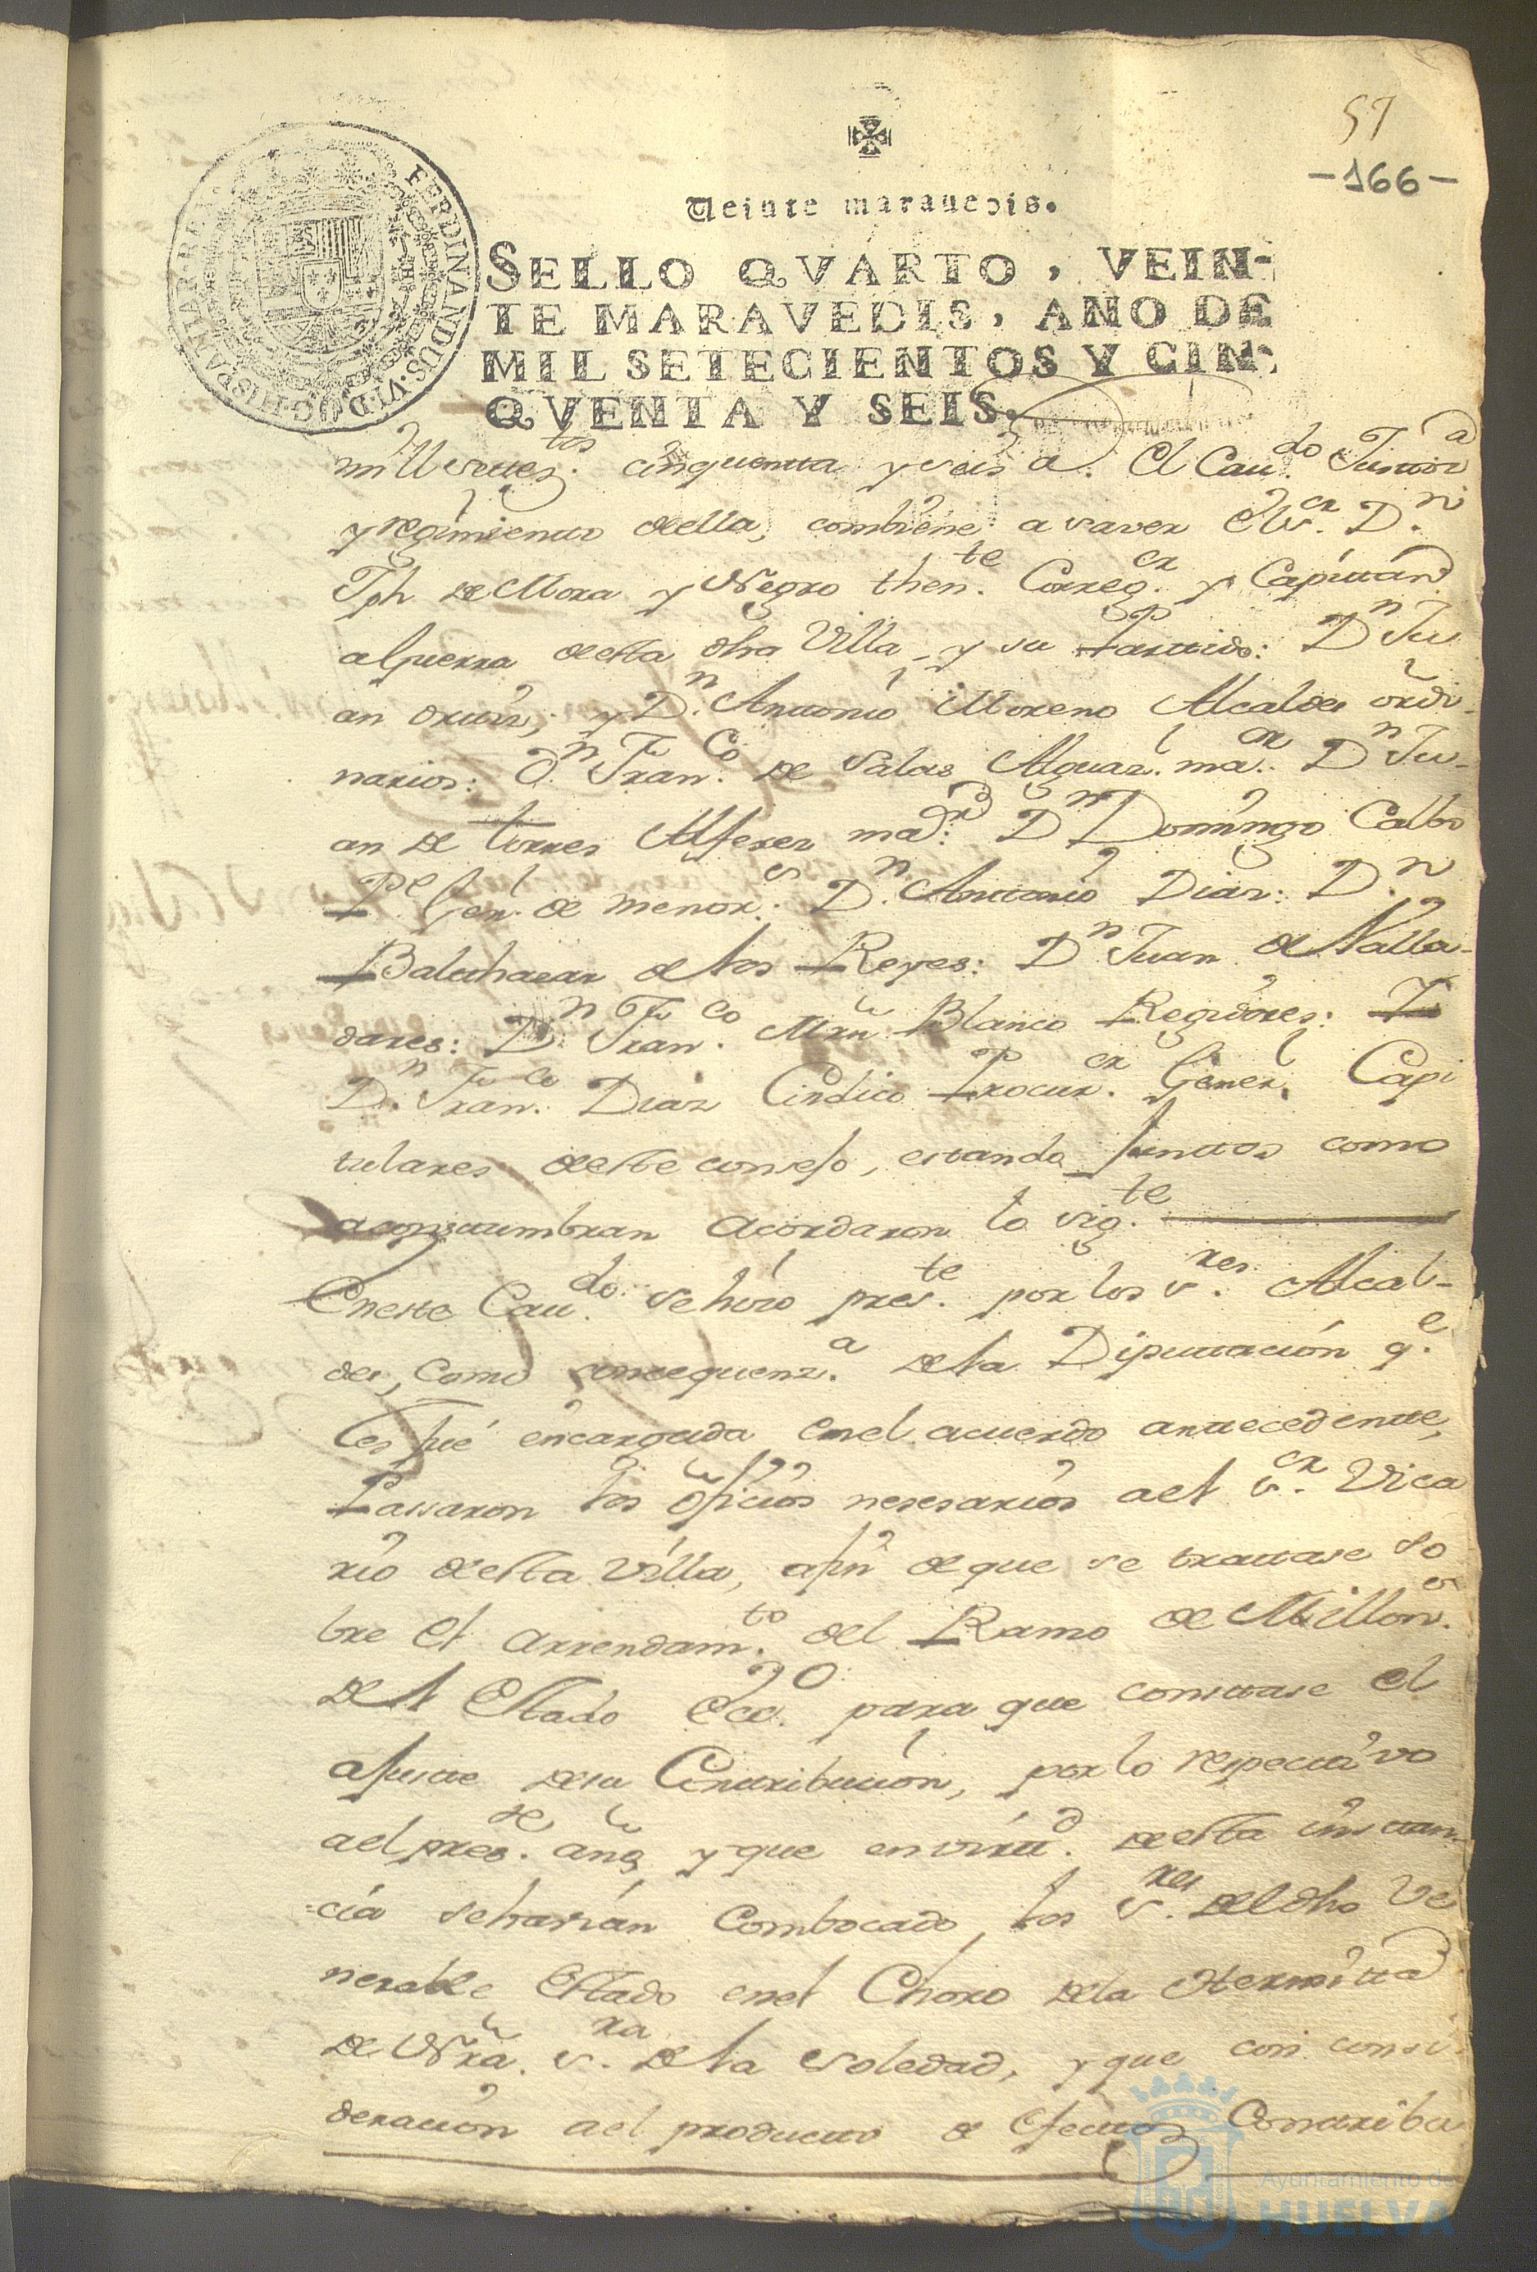 57
-166-
Veinte maravedis.
SELLO QVARTO, VEIN-
TE MARAVEDIS, AÑO DE
MIL SETECIENTOS Y CIN-
QVENTA Y SEIS.
FERDINANDUS·VI·D·G·HISPANIAR·REX·
mill settez.tos cinquenta y seis a. El Cau.do Justiz.a
y regimiento della, combiene a saver el s.or D.n
Jph de Mora y Negro then.te Correg.or y Capittan
a guerra desta dha Villa y su Parttido: D.n Ju
an ; y D.n Anttonio Moreno Alcaldes ordi-
narios: D.n Fran.co de Salas Alguaz.l ma.or D.n Ju-
an de torres Alferez ma.or D.n Domingo Calbo
P.e Gen.l de menor.s D.n Anttonio Diaz: D.n
Balthacar de los Reyes: D.n Juan de Valla-
dares: D.n Fran.co Mrn Blanco Regidores:
D.n Fran.co Diaz Cindico Procur.or Gener.l Capi
tulares deste consejo, estando junttos como
aconstumbran acordaron lo sig.te
Eneste Cau.do se hizo pres.te por los s.res Alcal-
des, como consequenz.a dela Diputtacion q.e
les fué encargada enel acuerdo anttecedentte,
Passaron los oficios nesesarios ael s.or Vica
rio desta Villa, afin de que se trattase so
bre el arrendam.to del Ramo de Millon.s
del Estado Ecc.o para que consttase el
ajustte desu Conttribucion, por lo respecttivo
ael pres.te año, y que en virtt.d desta insttan-
cia se havian Combocado los s.res del dho Ve
nerable Estado enel Choro dela Hermitta
de Nra. s.ra dela Soledad, y que con consi
deracion ael productto de efecttos Conttribu
Ayuntamiento de
HUELVA